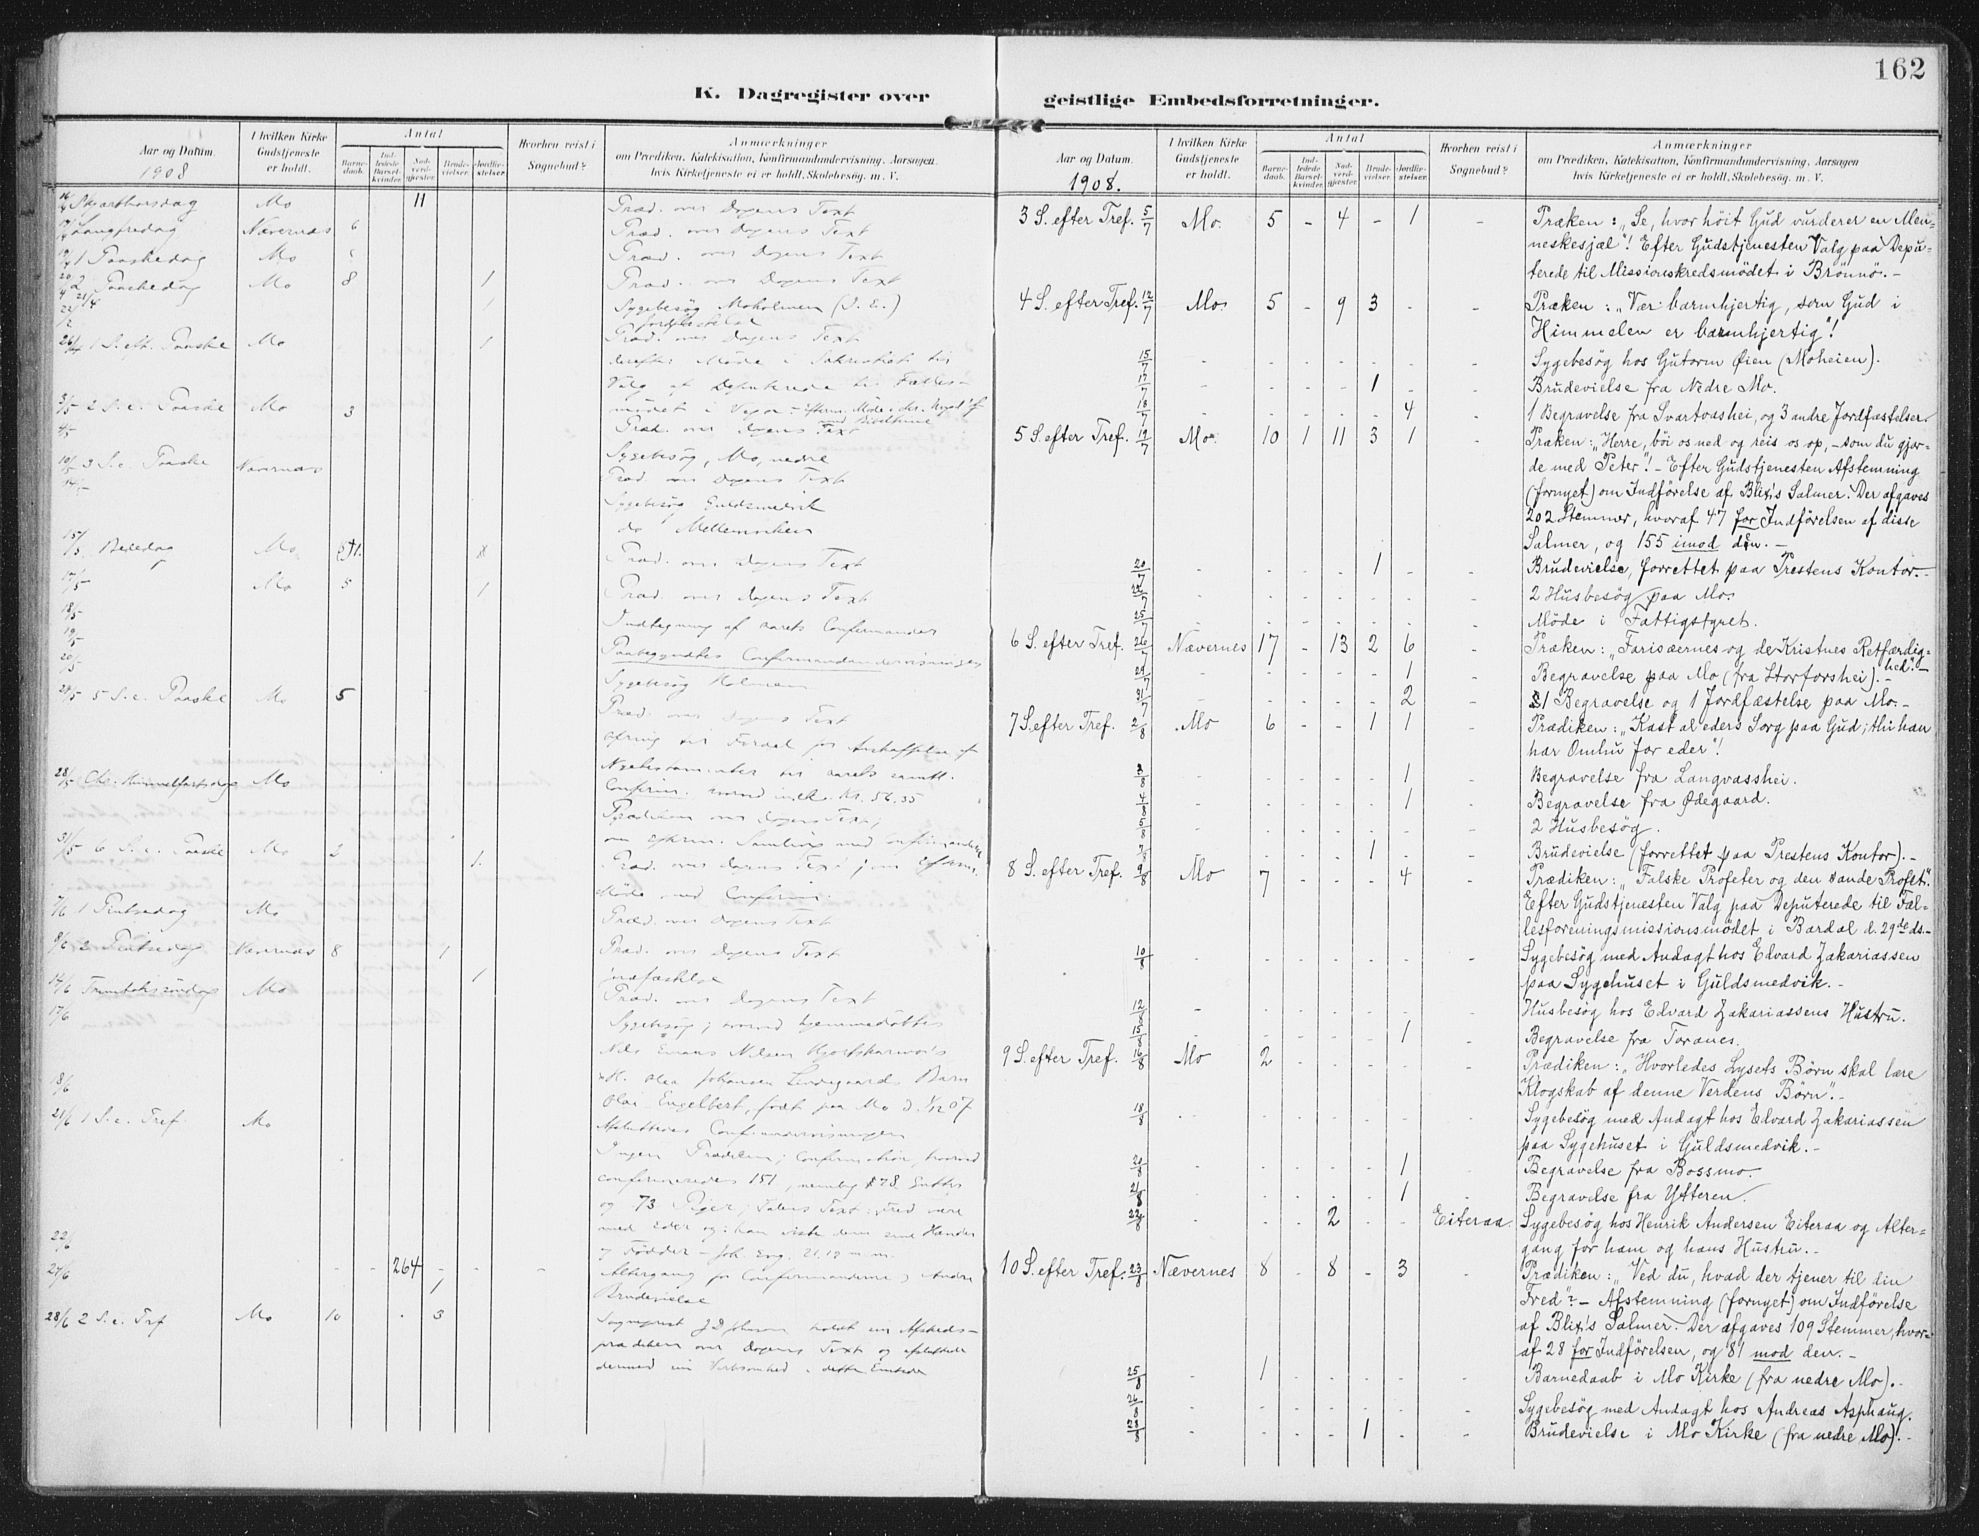 162
K. Dagregister over geistlige Embedsforretninger.
Aar og Datum. 1908
I hvilken Kirke Gudstjeneste er holdt.
Antal
Barne-daab.
Ind-ledede Barsel-kvinder.
Nad-verd-gjester.
Brude-vielser.
Jordfæ-stelser.
Hvorhen reist i Sognebud?
Anmærkninger
om Prædiken, Katekisation, Konfirmandundervisning, Aarsagen
hvis Kirketjeneste ei er holdt, Skolebesøg, m. V.
Skjærthorsdag Mo 11 Præd. over Dagens Text
Langfredag Nævernes 6 Præd. over Dagens Text
1 Paaskedag Mo Præd. over Dagens Text
2 Paaskedag Mo 8 1 Præd. over Dagens Text
21/4 1 Sygebesøg Moholmen
26/4 1 S. eft. Paaske Mo 1 Præd. over Dagens Text
derefter Møde i Sakristiet til
Valg af Deputerede til Fælles-
3/5 2 S. e. Paaske Mo 3 mødet i
Præd. over Dagens Text
10/5 3 S. e. Paaske Nævernes Sygebesøg, Mo, nedre
Præd. over Dagens Text
Sygebesøg Guldsmedvik
do Mellemviken
15/5 Bededag Mo Præd. over Dagens Text
17/5 Mo 5 1 Præd. over Dagens Text
18/5 Indtegning af aarets Confirmander
19/5 Paabegyndtes Confirmandundervisningen
20/5 Sygebesøg Holmen
24/5 5 S. e. Paaske Mo 5 Præd. over Dagens Text
ofring til Fordel for Anskaffelse af
Nytestamenter til aarets samtl.
28/5 Chr. Himmelfartsdag Mo Confirm. hvorved indk. Kr. 56.35
Prædiken over Dagens Text;
om efterm. Samling med Confirmanderne
31/5 6 S. e. Paaske Mo 2 1. Præd. over Dagens Text; om efterm.
Møde med Confirm.
7/6 1 Pintsedag Mo Præd. over Dagens Text
8/6 2 Pintsedag Nævernes 8 1 Præd. over Dagens Text
14/6 Trinitatissøndag Mo 1 Jordfæstelse
Præd. over Dagens Text
17/6 Sygebesøg; hvorved hjemmedøbtes
Olai Engelbert, født paa Mo d. 1/12 07
18/6 Afsluttedes Confirmandundervisningen
21/6 1 S. e. Tref. Mo Ingen Prædiken; Confirmation, hvorved
confirmeredes 151, nemlig 78 Gutter
og 73 Piger; Talens Text: Fred være
med eder og: han viste dem sine Hænder
og Fødder – Joh. Evg.
22/6 - - 264 - - - Altergang for Confirmanderne & Andre
27/6 1 Brudevielse
28/6 2 S. e. Tref Mo 10 . 3 Sogneprest holdt sin Afskeds-
prædiken over Dagens Text og afsluttede
dermed sin Virksomhed i dette Embede
Aar og Datum. 1908.
I hvilken Kirke Gudstjeneste er holdt.
Antal
Barne-daab.
Ind-ledede Barsel-kvinder.
Nad-verd-gjester.
Brude-vielser.
Jordfæ-stelser.
Hvorhen reist i Sognebud?
Anmærkninger
om Prædiken, Katekisation, Konfirmandundervisning, Aarsagen
hvis Kirketjeneste ei er holdt, Skolebesøg, m. V.
3 S. efter Tref. 5/7 Mo. 5 - 4 - 1 - Præken: „Se, hvor höit Gud vurderer en Men-
neskesjæl"! Efter Gudstjenesten Valg paa Depu-
terede til Missionskredsmödet i Brönnö. -
4 S. efter Tref. 12/7 Mo. 5 - 9 3 - - Præken: „Vær barmhjertig, som Gud i
Himmelen er barmhjertig"!
15/7 - - - - - - - Sygebesög hos Gutorm Öien (Moheien).
17/7 - - - - 1 - - Brudevielse fra Nedre Mo.
18/7 - - - - - 4 - 1 Begravelse fra Svartvashei, og 3 andre Jordfæstelser.
5 S. efter Tref. 19/7 Mo. 10 1 11 3 1 - Præken: „Herre, böi os ned og reis os op, - som du gjor-
de med Peter"! - Efter Gudstjenesten Afstemning
(fornyet) om Indförelse af Blix's Salmer. Der afgaves
202 Stemmer, hvoraf 47 for Indförelsen af disse
Salmer, og 155 imod den. -
20/7 - - - - 1 - - Brudevielse, forrettet paa Prestens Kontor. -
22/7 - - - - - - - 2 Husbesög paa Mo.
25/7 - - - - - - - Möde i Fattigstyret.
6 S. efter Tref. 26/7 Nævernes 17 - 13 2 6 - Præken: „Farisæernes og de Kristnes Retfærdig-
hed". -
29/7 - - - - - 1 - Begravelse paa Mo (fra Storforshei). -
31/7 - - - - - 2 - 1 Begravelse og 1 Jordfæstelse paa Mo. -
7 S. efter Tref. 2/8 Mo 6 - - 1 1 - Prædiken: „Kast al eders Sorg paa Gud; thi han
har Omhu for eder"!
3/8 - - - - - 1 - Begravelse fra Langvasshei.
4/8 - - - - - 1 - Begravelse fra Ødegaard.
5/8 - - - - - - - 2 Husbesög.
7/8 - - - - 1 - - Brudevielse (forrettet paa Prestens Kontor). -
8 S. efter Tref. 9/8 Mo 7 - - - 4 - Prædiken: „Falske Profeter og den sande Profet".
Efter Gudstjenesten Valg paa Deputerede til Fæl-
lesforeningsmissionsmödet i Bardal d. 29de ds. -
10/8 - - - - - - - Sygebesög med Andagt hos Edvard Zakariassen
paa Sygehuset i Guldsmedvik. -
12/8 - - - - - - - Husbesög hos Edvard Zakariassens Hustru.
15/8 - - - - - 1 - Begravelse fra Toranes.
9 S. efter Tref. 16/8 Mo 2 - - - - - Prædiken: „Hvorledes Lysets Børn skal lære
Klogskab af denne Verdens Börn". -
18/8 - - - - - - - Sygebesög med Andagt hos Edvard Zakariassen
paa Sygehuset i Guldsmedvik. -
20/8 - - - - - 1 - Begravelse fra Bossmo.
21/8 - - - - - 1 - Begravelse fra Ytteren.
22/8 - - - 2 - - Eiteraa. Sygebesög hos Henrik Andersen Eiteraa og Alter-
gang for ham og hans Hustru. -
10 S. efter Tref. 23/8 Nævernes 8 - 8 - 3 - Prædiken: „Ved du, hvad der tjener til din
Fred"? - Afstemning (fornyet) om Indförelse
af Blix's Salmer. Der afgaves 109 Stemmer, hvor-
af 28 for Indförelsen, og 81 mod den. -
25/8 - 1 - - - - - Barnedaab i Mo Kirke (fra nedre Mo). -
26/8 - - - - - - - Sygebesög med Andagt hos Andreas Asphaug.
28/8 - - - - 1 - - Brudevielse i Mo Kirke (fra nedre Mo). -